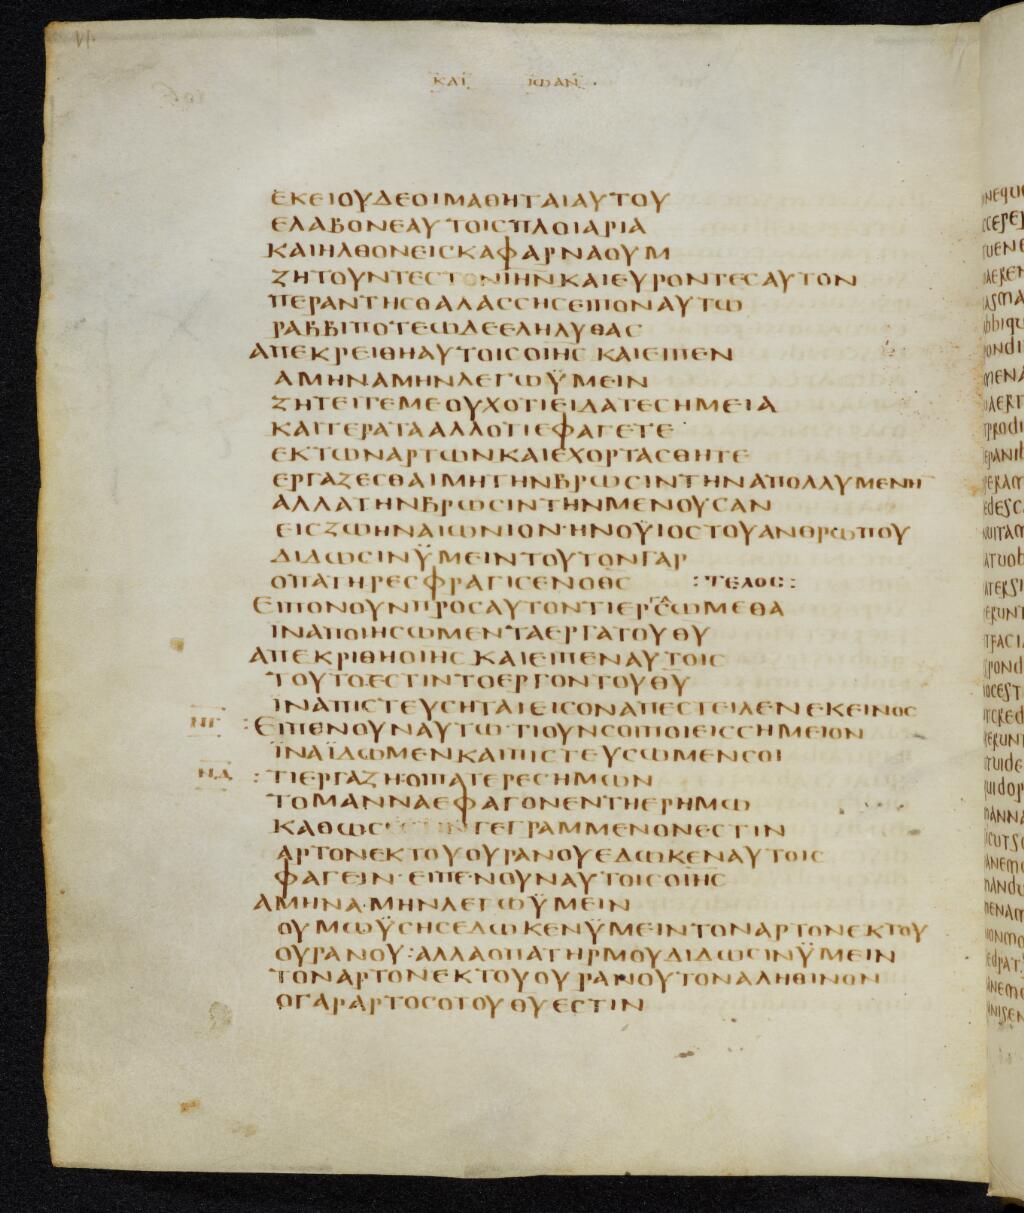 ΚΑΙ ΙΩΑΝ
ΕΚΕΙΟΥΔΕΟΙΜΑΘΗΤΑΙΑΥΤΟΥ
ΕΛΑΒΟΝΕΑΥΤΟΙСΠΛΟΙΑΡΙΑ
ΚΑΙΗΛΘΟΝΕΙСΚΑΦΑΡΝΑΟΥΜ
ΖΗΤΟΥΝΤΕСΤΟΝΙΗΝΚΑΙΕΥΡΟΝΤΕСΑΥΤΟΝ
ΠΕΡΑΝΤΗСΘΑΛΑССΗСΕΙΠΟΝΑΥΤΩ
ΡΑΒΒΙΠΟΤΕΩΔΕΕΛΗΛΥΘΑС
ΑΠΕΚΡΕΙΘΗΑΥΤΟΙСΟΙΗС ΚΑΙΕΙΠΕΝ
ΑΜΗΝΑΜΗΝΛΕΓΩΫΜΕΙΝ
ΖΗΤΕΙΤΕΜΕΟΥΧΟΤΙΕΙΔΑΤΕСΗΜΕΙΑ
ΚΑΙΤΕΡΑΤΑΑΛΛΟΤΙΕΦΑΓΕΤΕ
ΕΚΤΩΝΑΡΤΩΝΚΑΙΕΧΟΡΤΑСΘΗΤΕ
ΕΡΓΑΖΕСΘΑΙΜΗΤΗΝΒΡΩСΙΝΤΗΝΑΠΟΛΛΥΜΕΝΗ
ΑΛΛΑΤΗΝΒΡΩСΙΝΤΗΝΜΕΝΟΥСΑΝ
ΕΙСΖΩΗΝΑΙΩΝΙΟΝ·ΗΝΟΫΙΟСΤΟΥΑΝΘΡΩΠΟΥ
ΔΙΔΩСΙΝΫΜΕΙΝΤΟΥΤΟΝΓΑΡ
ΟΠΑΤΗΡΕСΦΡΑΓΙСΕΝΟΘС :ΤΕΛΟС:
ΕΙΠΟΝΟΥΝΠΡΟСΑΥΤΟΝΤΙΕΡΓΑСΩΜΕΘΑ
ΙΝΑΠΟΙΗСΩΜΕΝΤΑΕΡΓΑΤΟΥΘΥ
ΑΠΕΚΡΙΘΗΟΙΗС ΚΑΙΕΙΠΕΝΑΥΤΟΙС
ΤΟΥΤΟΕСΤΙΝΤΟΕΡΓΟΝΤΟΥΘΥ
ΙΝΑΠΙСΤΕΥСΗΤΑΙΕΙСΟΝΑΠΕСΤΕΙΛΕΝΕΚΕΙΝΟС
ΝΓ :ΕΙΠΕΝΟΥΝΑΥΤΩ·ΤΙΟΥΝСΟΙΠΟΙΕΙССΗΜΕΙΟΝ
ΪΝΑΪΔΩΜΕΝΚΑΙΠΙСΤΕΥСΩΜΕΝСΟΙ
ΝΔ :ΤΙΕΡΓΑΖΗ·ΟΙΠΑΤΕΡΕСΗΜΩΝ
ΤΟΜΑΝΝΑΕΦΑΓΟΝΕΝΤΗΕΡΗΜΩ
ΚΑΘΩС ΓΕΓΡΑΜΜΕΝΟΝΕСΤΙΝ
ΑΡΤΟΝΕΚΤΟΥΟΥΡΑΝΟΥΕΔΩΚΕΝΑΥΤΟΙС
ΦΑΓΕΙΝ·ΕΙΠΕΝΟΥΝΑΥΤΟΙСΟΙΗС
ΑΜΗΝΑ·ΜΗΝΛΕΓΩΫΜΕΙΝ
ΟΥΜΩΫСΗСΕΔΩΚΕΝΫΜΕΙΝΤΟΝΑΡΤΟΝΕΚΤΟΥ
ΟΥΡΑΝΟΥ:ΑΛΛΑΟΠΑΤΗΡΜΟΥΔΙΔΩСΙΝΫΜΕΙΝ
ΤΟΝΑΡΤΟΝΕΚΤΟΥΟΥΡΑΝΟΥΤΟΝΑΛΗΘΙΝΟΝ
ΟΓΑΡΑΡΤΟСΟΤΟΥΘΥΕСΤΙΝ